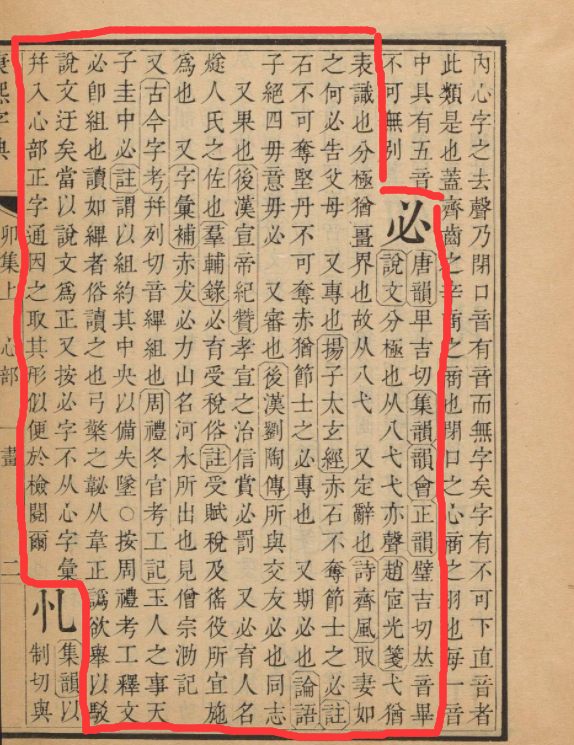 內心字之去聲乃閉口音有音而無字矣字有不可下直音者
此類是也蓋齊齒之辛商之商也閉口之心商之羽也每一音
中具有五音
不可無別
必
唐韻𤰞吉切集韻韻會正韻璧吉切𠀤音畢
說文分極也从八弋弋亦聲趙宧光箋弋猶
表識也分極猶畺界也故从八弋 又定辭也詩齊風取妻如
之何必告父母 又專也揚子太玄經赤石不奪節士之必註
石不可奪堅丹不可奪赤猶節士之必專也 又期必也論語
子絕四毋意毋必 又審也後漢劉陶傳所與交友必也同志
又果也後漢宣帝紀贊孝宣之治信賞必罰 又必育人名
燧人氏之佐也羣輔錄必育受稅俗註受賦稅及徭役所宜施
爲也 又字彙補赤犮必力山名河水所出也見僧宗泐記
又古今字考幷列切音縪組也周禮冬官考工記玉人之事天
子圭中必註謂以組約其中央以備失墜○按周禮考工釋文
必卽組也讀如縪者俗讀之也弓檠之䪐从韋正譌欲舉以駁
說文迂矣當以說文爲正又按必字不从心字彙
幷入心部正字通因之取其形似便於檢閱爾
集韻以
制切與
康熙字典 卯集上 心部 一畫 二